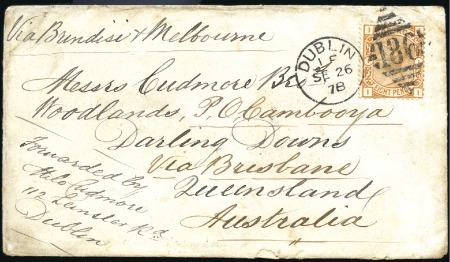 Via Brindisi & Melbourne
DUBLIN
SE 26
78
186
EIGHT PENCE
Messrs Cudmore Bros
Woodlands, P.O. Cambooya
Darling Downs
Via Brisbane
Queensland
Australia
Forwarded by
Cudmore
112 Leinster Rd
Dublin